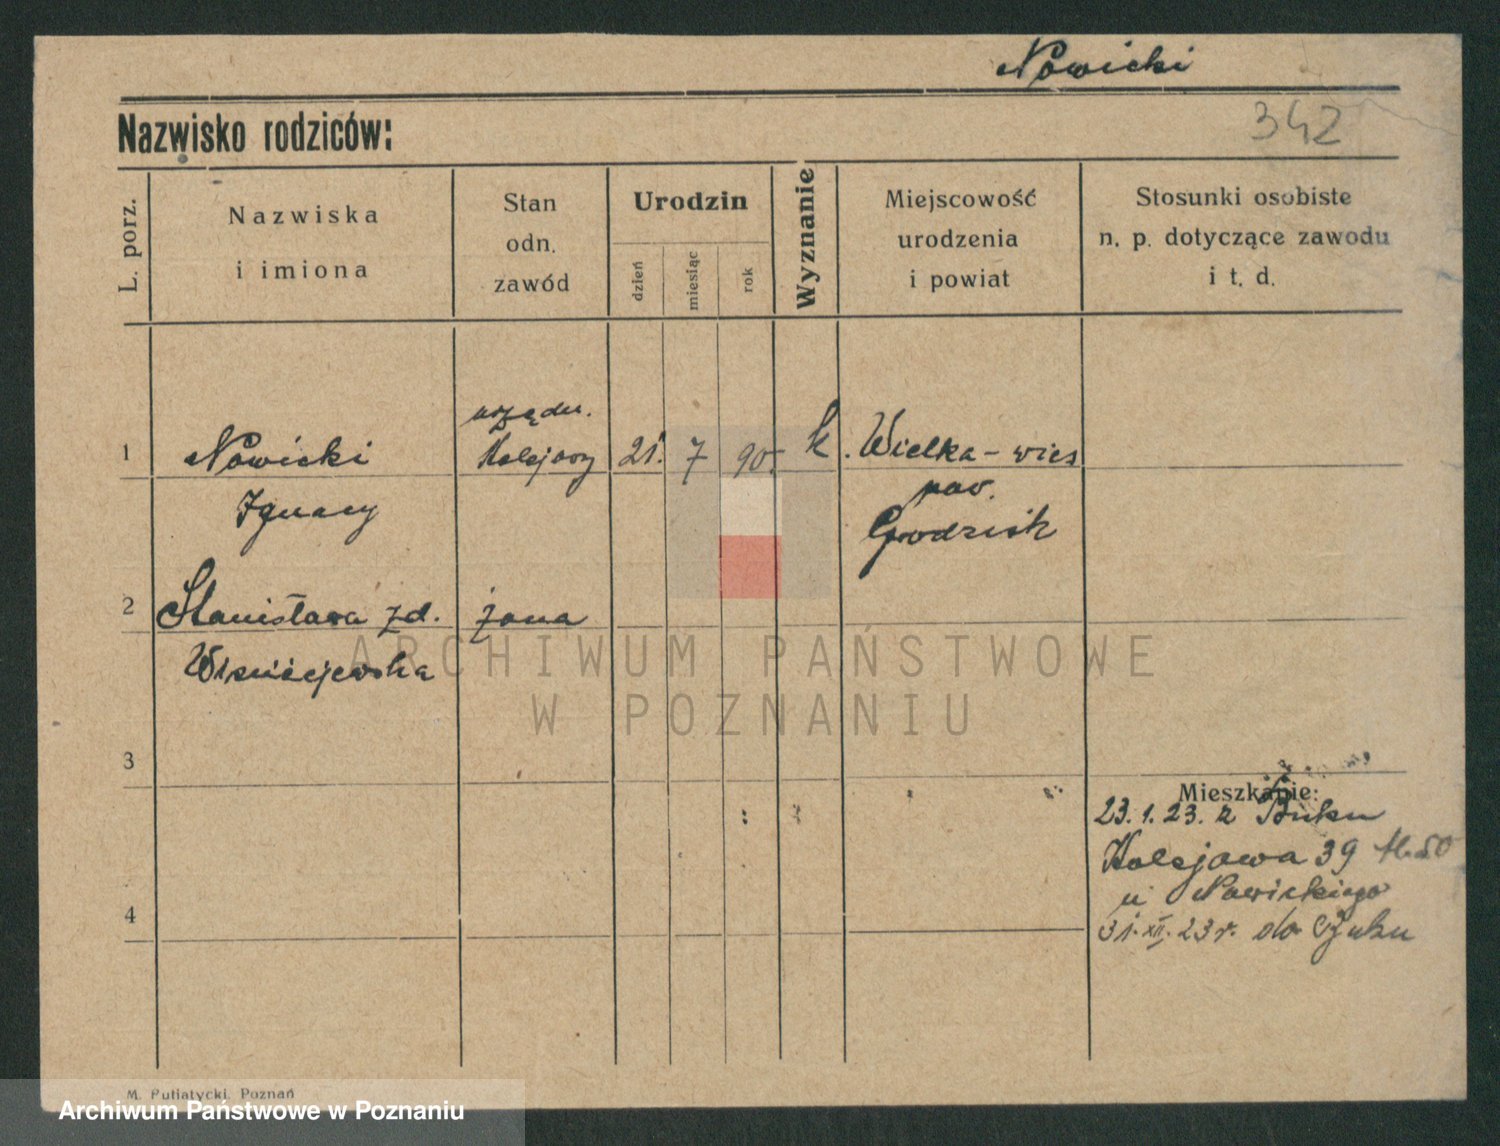 Nowicki
342
Nazwisko rodziców:
L. porz.
Nazwiska
i imiona
Stan
odn.
zawód
Urodzin
dzień
miesiąc
rok
Wyznanie
Miejscowość
urodzenia
i powiat
Stosunki osobiste
n. p. dotyczące zawodu
i t. d.
urzędn.
1 Nowicki Kolejowy 21. 7 90. k. Wielka-wies
Ignacy pow.
Grodzisk
2 Stanisława zd. żona
ARCHIWUM PAŃSTWOWE
W POZNANIU
3
Mieszkanie:
23.1.23. z Buku
Kolejowa 39
u Nowickiego
4
31.XII.23r. do Buku
M. Putiatycki, Poznań
Archiwum Państwowe w Poznaniu